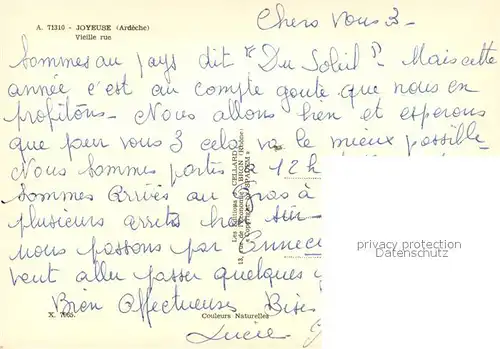 A. 71310 - JOYEUSE (Ardèche)
Vieille rue
Chers Vous 3 -
Sommes au pays dit "Du Soleil". Mais cette
année c'est au compte goute que nous en
profitons - Nous allons bien et esperons
que pour vous 3 cela va le mieux possible
Nous sommes partis à 12 h
Sommes arrivés au à
plusieurs arrets
nous passons par Annecy
veut aller passer quelques
Bien Affectueuses Bises
Lucie
Les Editions CELLARD
BRON (Rhône)
« Copyright by SPADEM »
X. 7065.
Couleurs Naturelles
privacy protection
Datenschutz